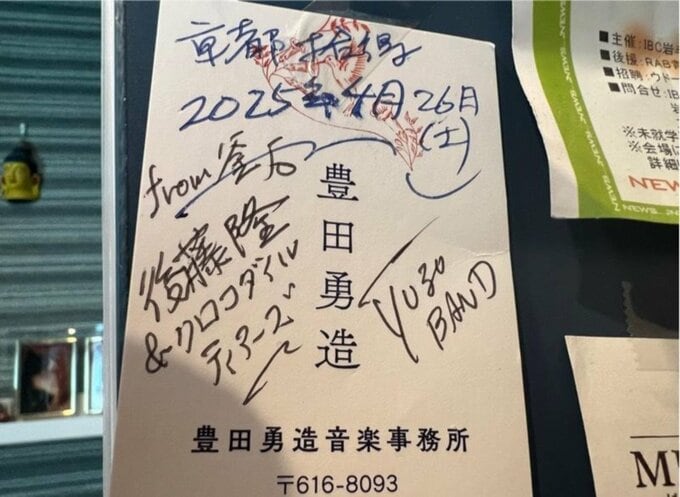 京都 拾得
2025年4月26日
(土)
from 釜石
後藤隆
&クロコダイル
ティアーズ
YUZO
BAND
豊田勇造
豊田勇造音楽事務所
〒616-8093
■主催:IBC岩
■後援:RAB青
■招聘:ウドー
■問合せ:IB
岩
※未就学
※会場に
詳細
NEWS
NEWS
NEWS